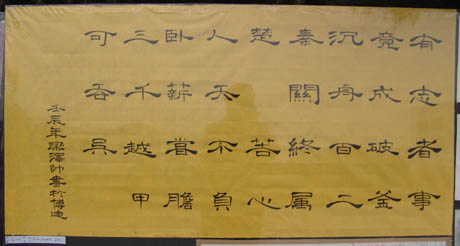 有志者事
竟成破釜
沉舟百二
秦關終属
楚 苦心
人天不負
卧薪嘗膽
三千越甲
可吞吳
壬辰年梁澤帥書於博迪